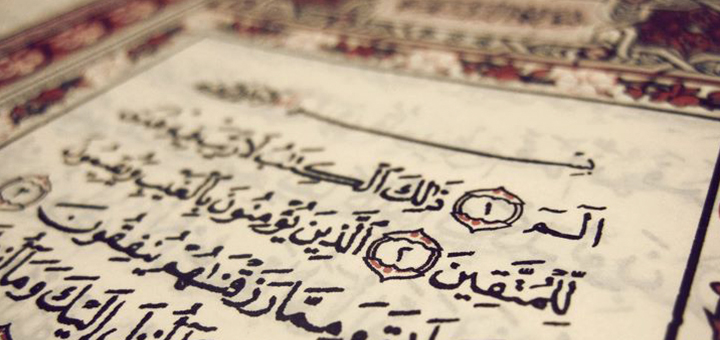 الٓمٓ ١ ذَٰلِكَ ٱلْكِتَٰبُ لَا رَيْبَ فِيهِ
لِّلْمُتَّقِينَ ٢ ٱلَّذِينَ يُؤْمِنُونَ بِٱلْغَيْبِ وَيُقِيمُونَ
وَمِمَّا رَزَقْنَٰهُمْ يُنفِقُونَ ٣
أُنزِلَ إِلَيْكَ وَمَآ